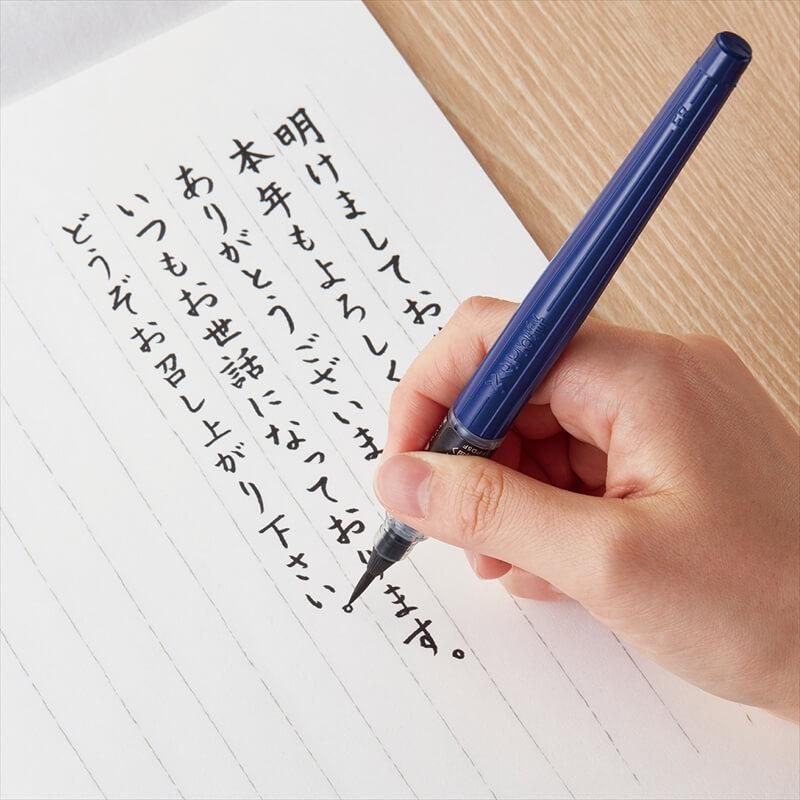 明けましてお
本年もよろしく
ありがとうございま
いつもお世話になってお ます。
どうぞお召し上がり下さい。